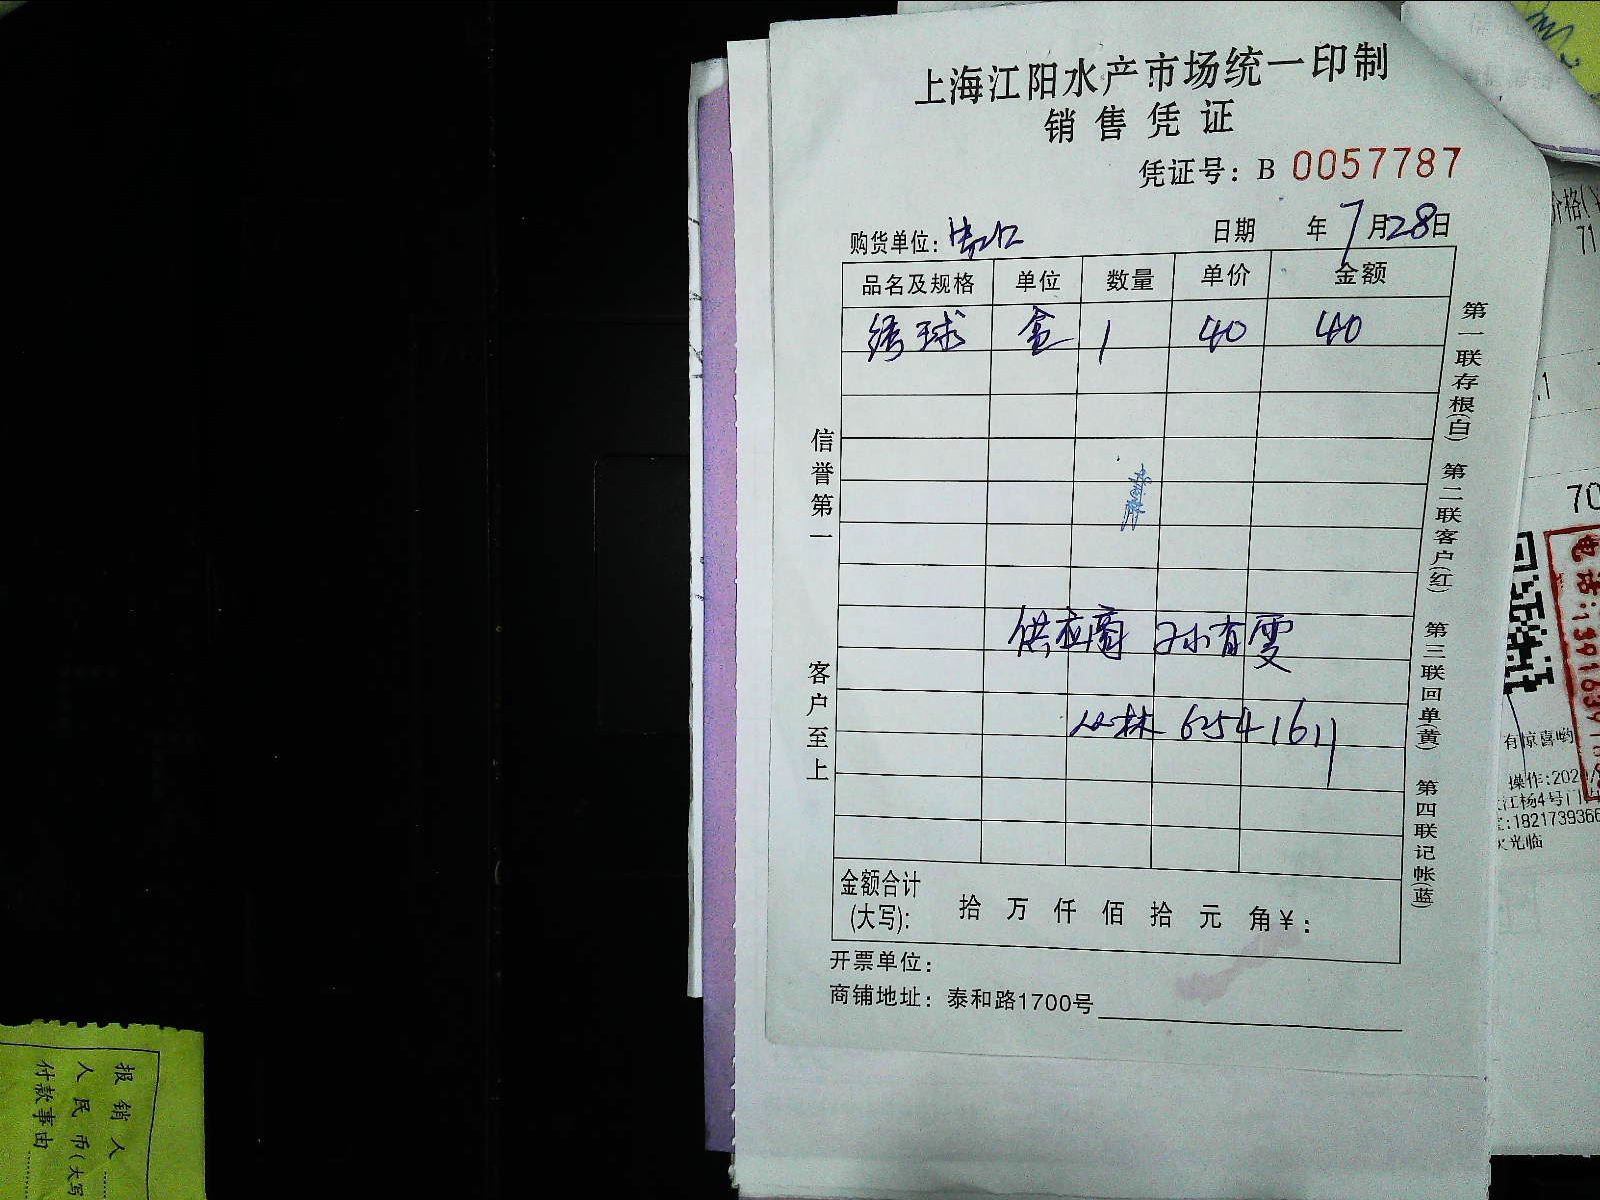 上海江阳水产市场统一印制
销售凭证
凭证号：B 0057787
购货单位：
日期 年 7月28日
品名及规格 单位 数量 单价 金额
绣球 盒 1 40 40
供应商 孙有雯
6541611
金额合计
(大写)： 拾 万 仟 佰 拾 元 角 ¥：
开票单位：
商铺地址：泰和路1700号
信誉第一
客户至上
第一联存根(白)
第二联客户(红)
第三联回单(黄)
第四联记帐(蓝)
价格(
71
.1
70
有惊喜哟
操作:202
江杨4号门
:182173936
光临
电话:1391639
报销人
人民币(大写
付款事由